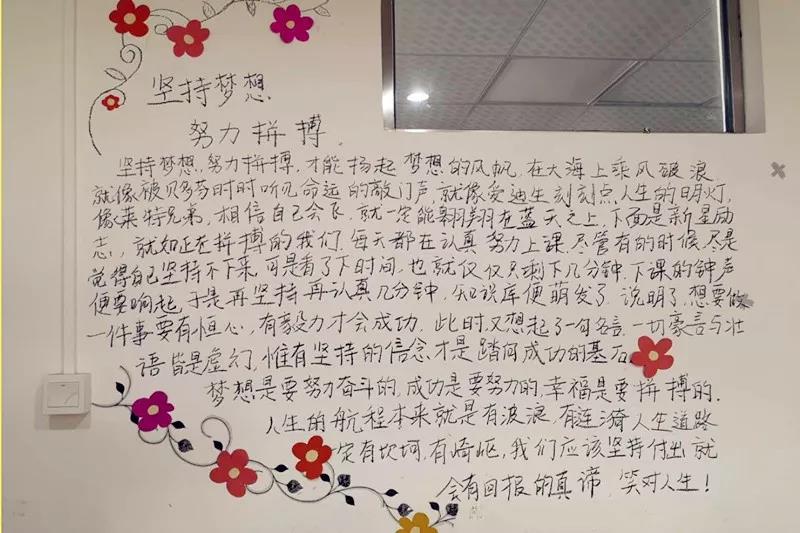 坚持梦想
努力拼搏
坚持梦想、努力拼搏，才能扬起梦想的风帆，在大海上乘风破浪
就像被贝多芬时时听见命运的敲门声就像爱迪生刻刻点人生的明灯，
像莱特兄弟，相信自己会飞，就一定能翱翔在蓝天之上，下面是新星励
志，就如正在拼搏的我们，每天都在认真努力上课，尽管有的时候，尽是
觉得自己坚持不下来，可是看了下时间，也就仅仅只剩下几分钟，下课的钟声
便要响起，于是再坚持再认真几分钟，知识库便萌发了，说明了，想要做
一件事要有恒心，有毅力才会成功，此时又想起了一句名言，一切豪言与壮
语皆是虚幻，惟有坚持的信念才是踏向成功的基石
梦想是要努力奋斗的，成功是要努力的，幸福是要拼搏的．
人生的航程本来就是有波浪，有涟漪人生道路
一定有坎坷，有崎岖，我们应该坚持付出就
会有回报的真谛，笑对人生！